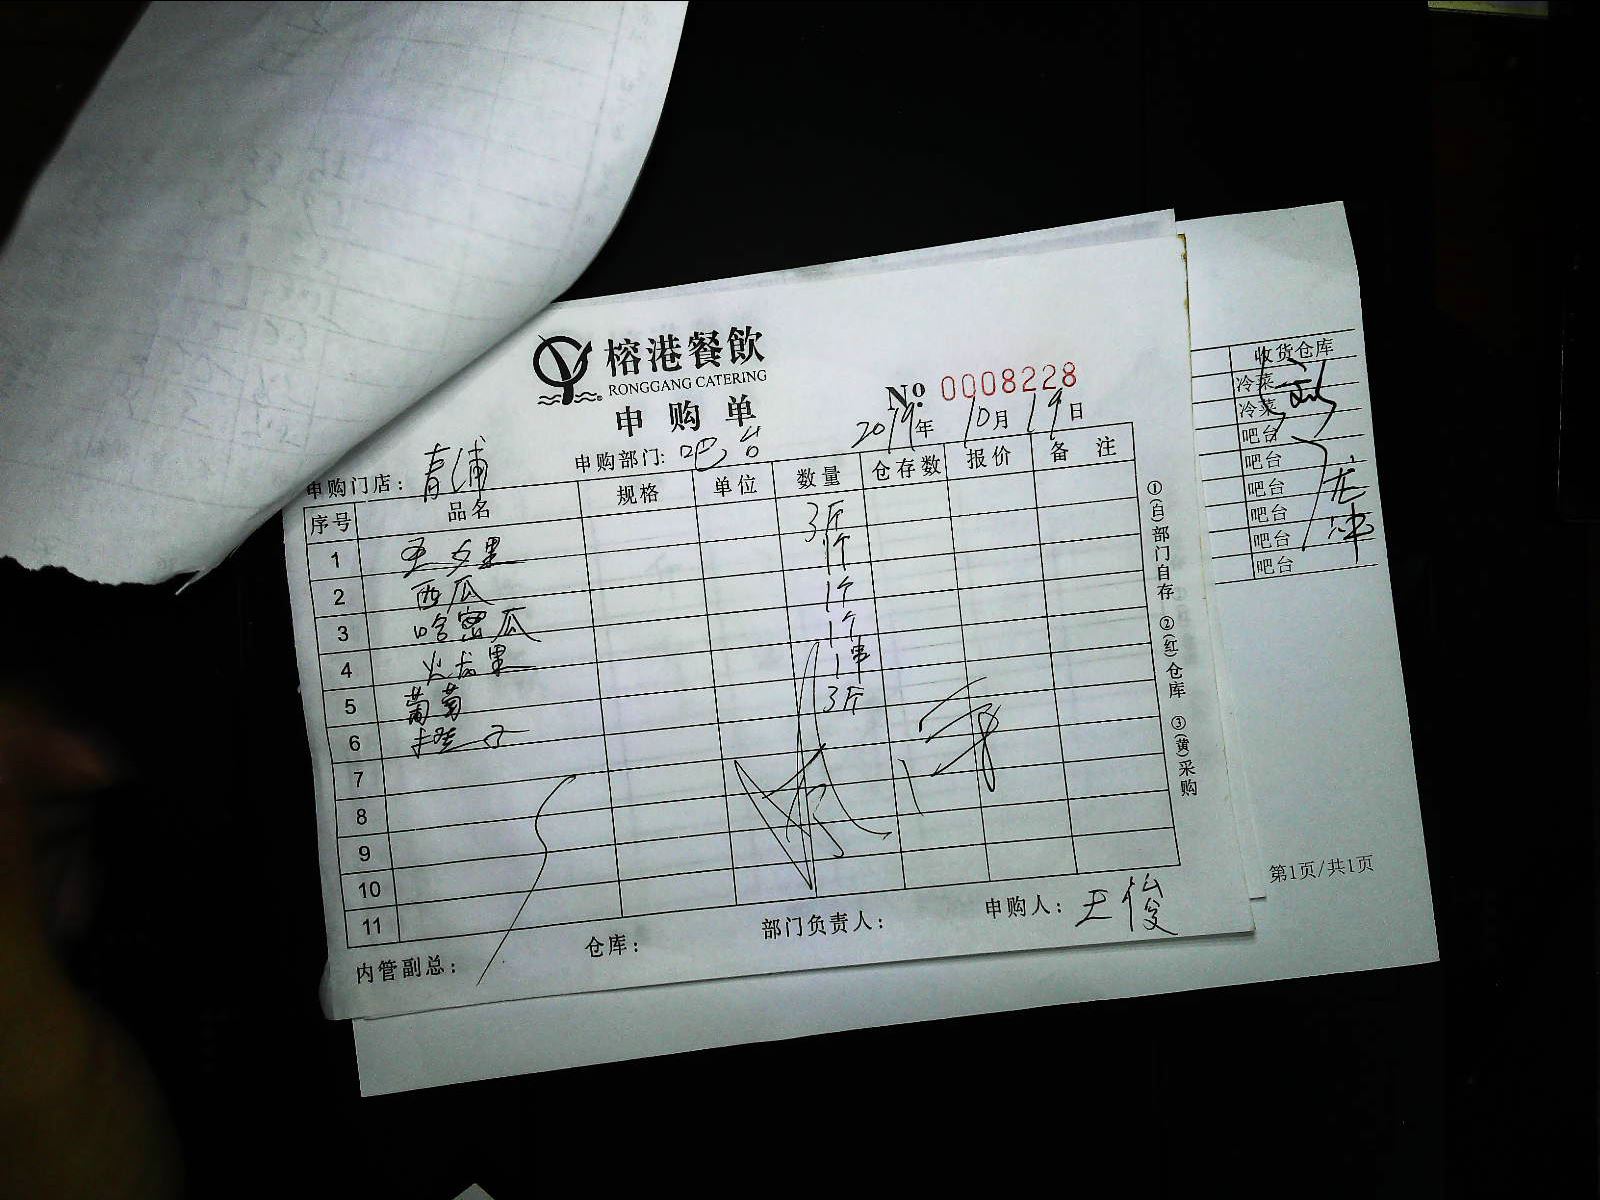 榕港餐飲
RONGGANG CATERING
申购单
No 0008228
2019年 10月 19日
申购门店：青浦 申购部门：吧台
序号 品名 规格 单位 数量 仓存数 报价 备注
1 圣女果 3斤
2 西瓜 1个
3 哈密瓜 1个
4 火龙果 1个
5 葡萄 1串
6 橙子 3斤
7
8
9
10
11
内管副总： 仓库： 部门负责人： 申购人：王俊
①(白)部门自存 ②(红)仓库 ③(黄)采购
收货仓库
冷菜
冷菜
吧台
吧台
吧台
吧台
吧台
吧台
第1页/共1页